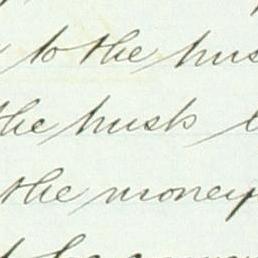 to the hus
the husk
the money